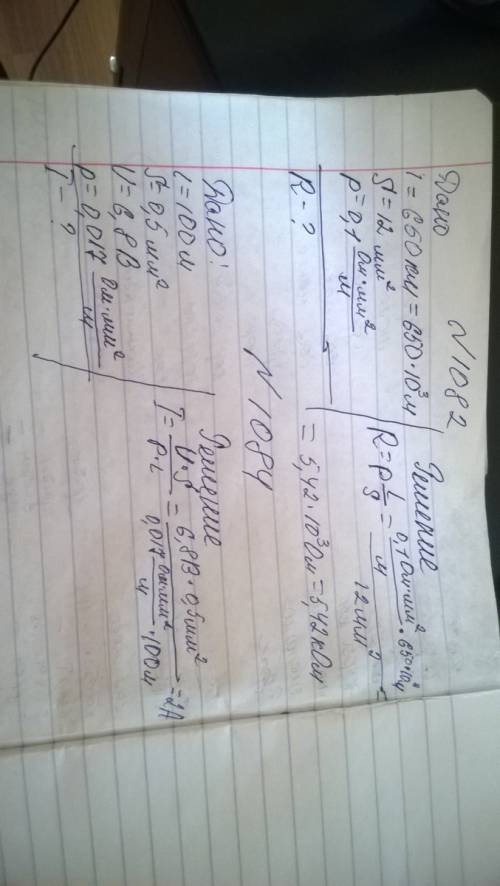 N 1082
Дано
l = 650 км = 650·10³ м
S = 12 мм²
ρ = 0,1 Ом·мм²/м
R - ?
Решение
R = ρ l/S = 0,1 Ом·мм²/м · 650·10³ м / 12 мм² =
= 5,42·10³ Ом = 5,42 кОм
N 1084
Дано:
l = 100 м
S = 0,5 мм²
U = 6,8 В
ρ = 0,017 Ом·мм²/м
I - ?
Решение
I = U·S/ρ·l = 6,8 В · 0,5 мм² / 0,017 Ом·мм²/м · 100 м = 2 А